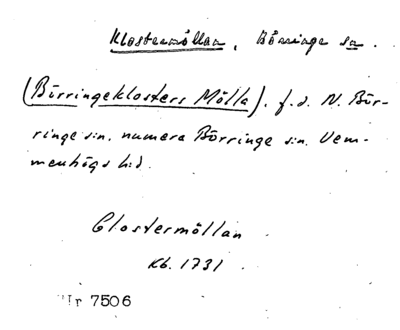 Klostermöllan, Börringe sn.
(Börringeklosters Mölla), f.d. N. Bör-
ringe sn. numera Börringe sn. Vem-
menhögs hd.
Clostermöllan
Kb. 1731
Nr 7506